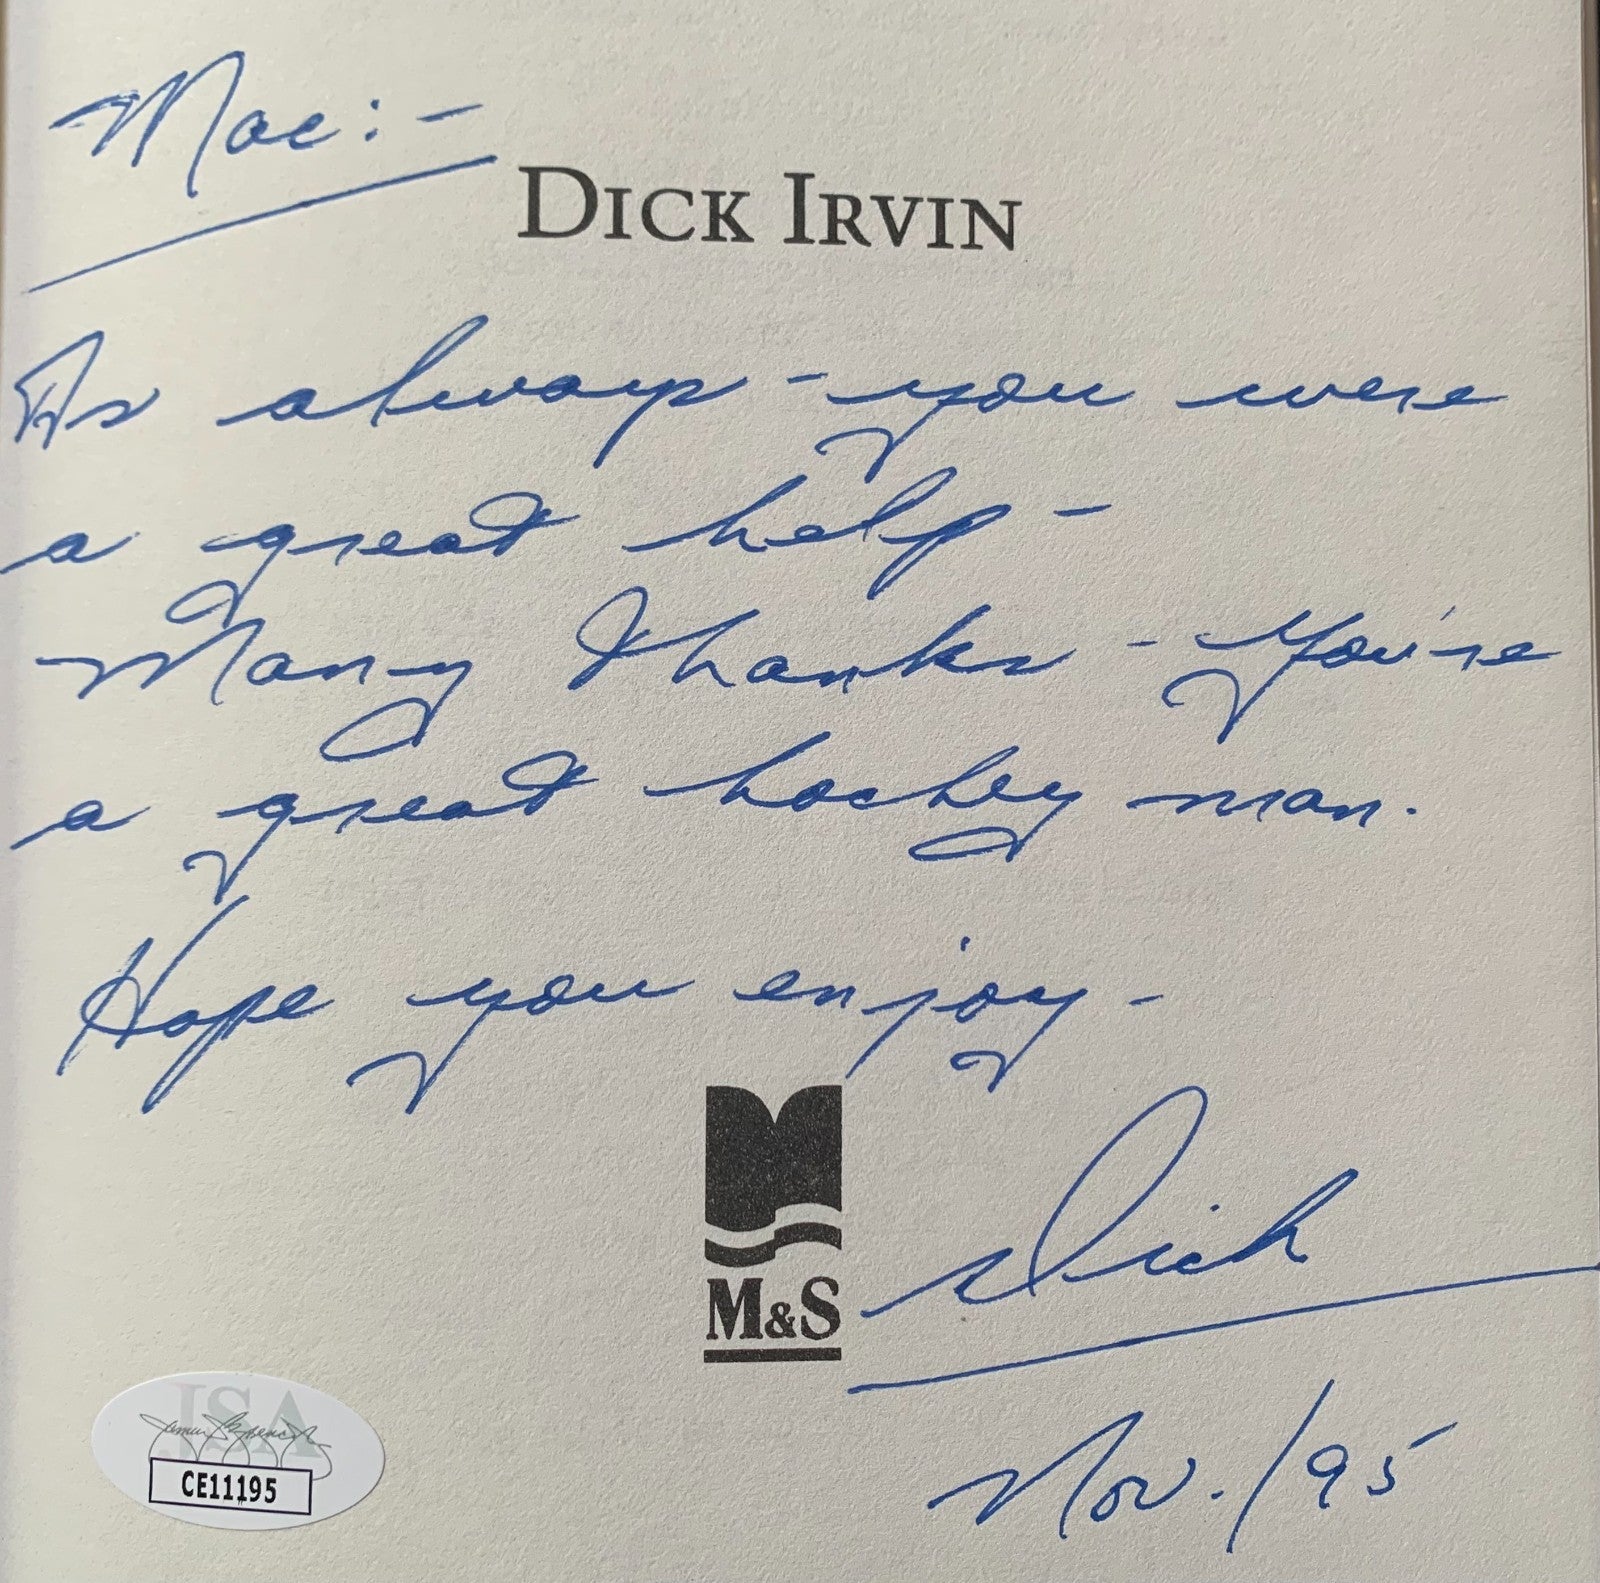 Mac:-
DICK IRVIN
As always - you were
a great help -
Many thanks - You're
a great hockey man.
Hope you enjoy -
M&S
Dick
Nov. /95
JSA
CE11195